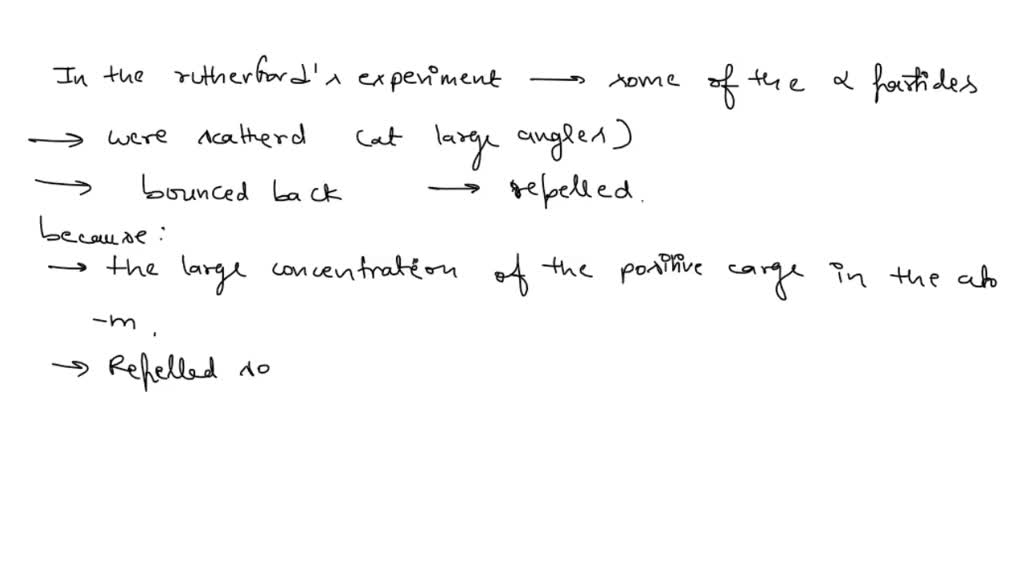 In the rutherford's experiment → some of the α particles
→ were scatterd (at large angles)
→ bounced back → repelled.
because:
→ the large concentration of the positive carge in the ato
-m.
→ Repelled so